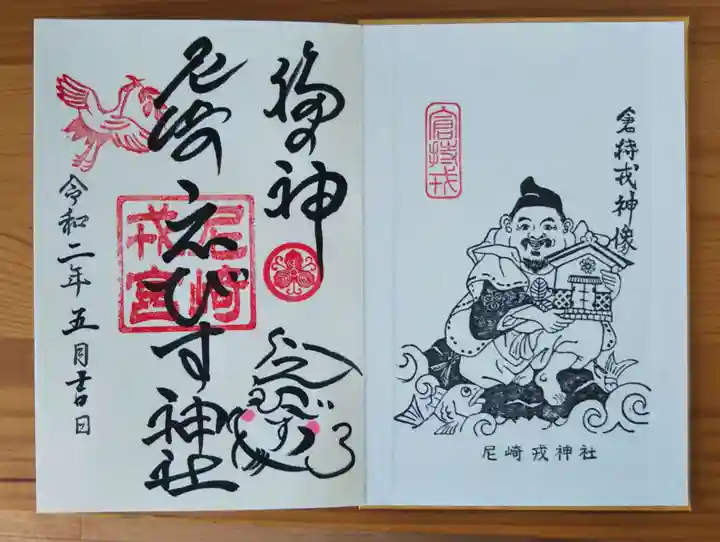 倉持戎神像
倉持戎
尼崎戎神社
福の神
尼崎えびす神社
尼崎
戎宮
えびす
令和二年五月吉日